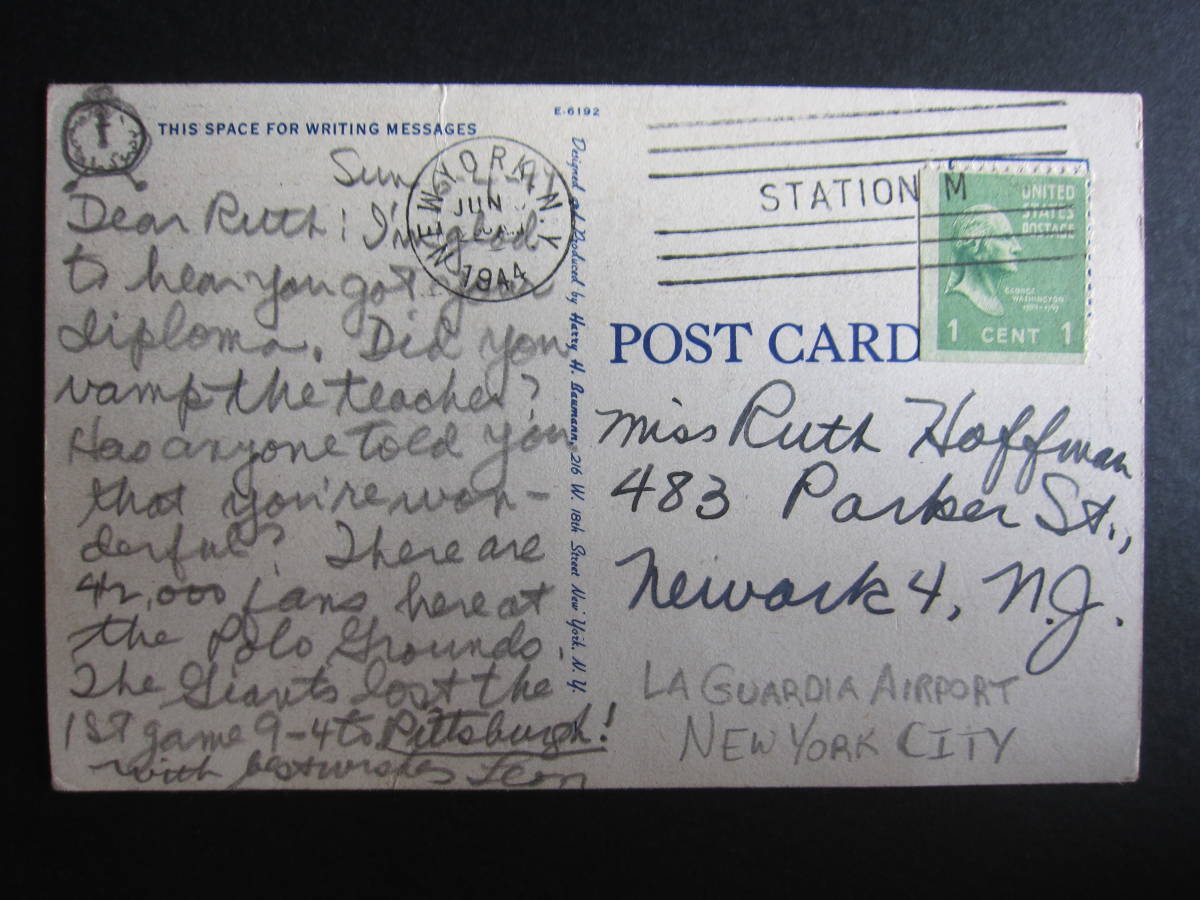 THIS SPACE FOR WRITING MESSAGES
Sun
Dear Ruth: I'm glad
to hear you got your
diploma. Did you
vamp the teacher?
Has anyone told you
that you're won-
derful? There are
42,000 fans here at
the Polo Grounds.
The Giants lost the
1st game 9-4 to Pittsburgh!
with best wishes Leon
E-6192
Designed and Produced by Harry H. Baumann, 216 W. 18th Street New York, N. Y.
NEW YORK, N.Y.
JUN
1944
STATION M
UNITED
STATES
POSTAGE
GEORGE
WASHINGTON
1 CENT 1
POST CARD
Miss Ruth Hoffman
483 Parker St.,
Newark 4, N.J.
LA GUARDIA AIRPORT
NEW YORK CITY